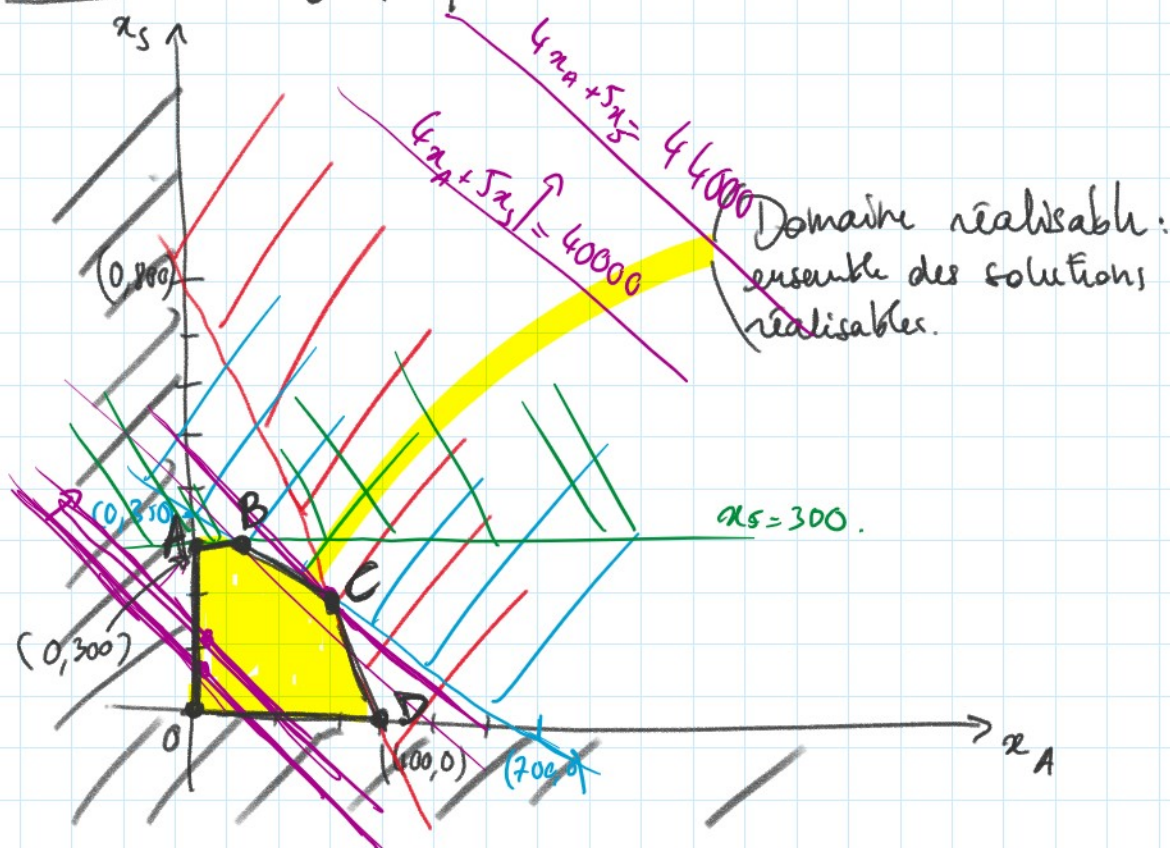 x_S
4x_A + 5x_S = 44000
4x_A + 5x_S = 40000
Domaine réalisable :
ensemble des solutions
réalisables.
(0,800)
(0,350)
B
x_S = 300.
A
C
(0,300)
D
0
(400,0)
(700,0)
x_A